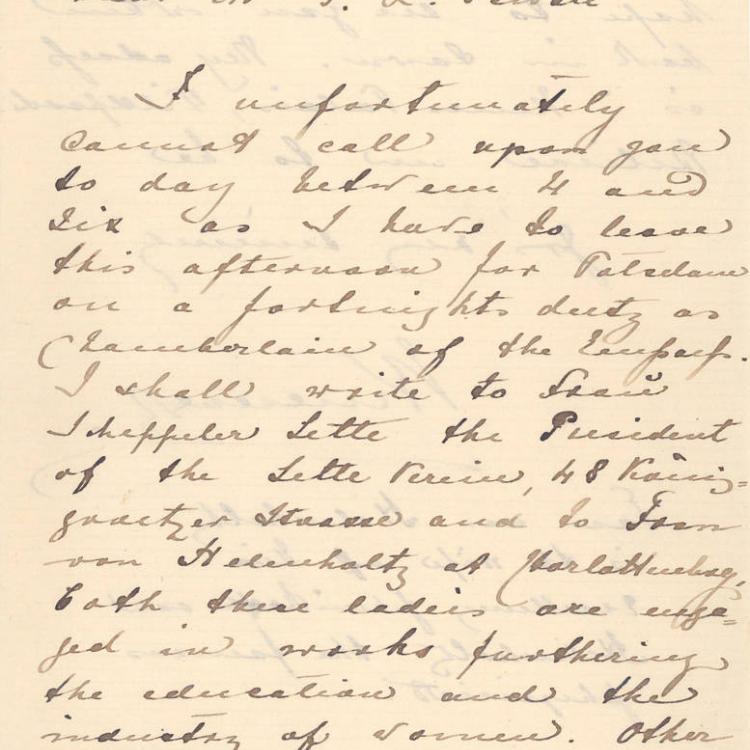 I unfortunately
cannot call upon you
to day between 4 and
six as I have to leave
this afternoon for Potsdam
on a fortnights duty as
Chamberlain of the Empress.
I shall write to Frau
Scheppeler Lette the President
of the Lette Verein, 48 König=
graetzer Strasse and to Frau
von Helmholtz at Charlottenburg,
both these ladies are enga=
ged in works furthering
the education and the
industry of women. Other